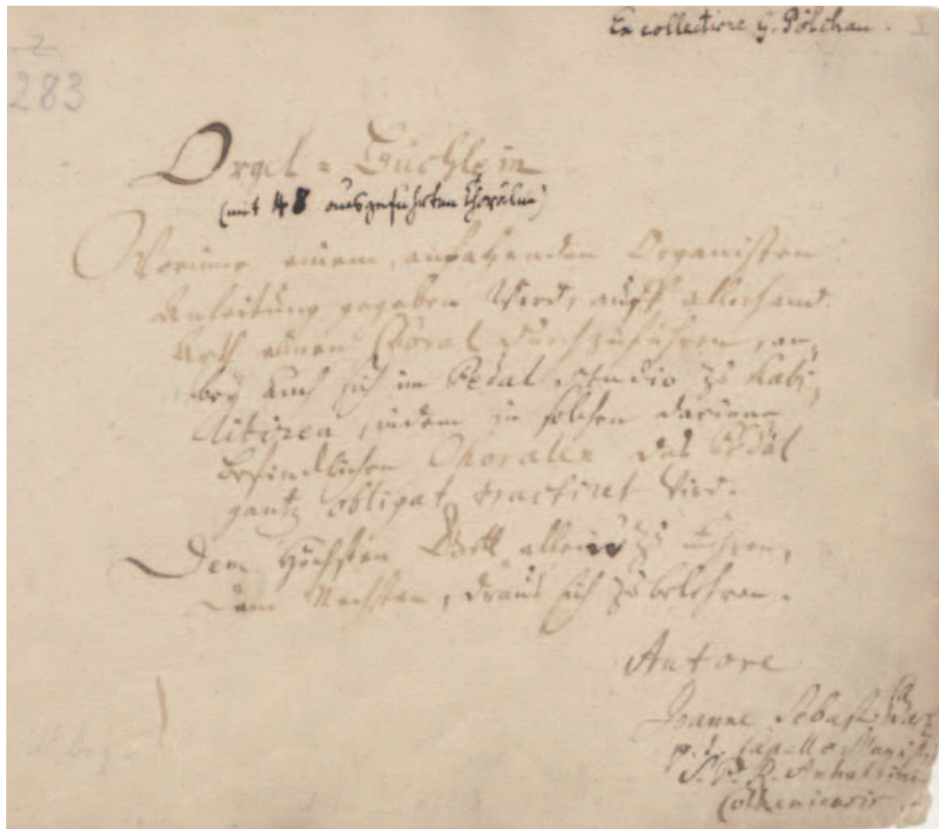 Ex collectione G. Pölchau.
283
Orgel-Büchlein
(mit 48 ausgeführten Chorälen)
Worinne einem anfahenden Organisten
Anleitung gegeben wird, auff allerhand
Arth einen Choral durchzuführen, an-
bey auch sich im Pedal studio zu habi-
litiren, indem in solchen darinne
befindlichen Choralen das Pedal
gantz obligat tractiret wird.
Dem Höchsten Gott allein zu Ehren,
Dem Nechsten, draus sich zu belehren.
Autore
Joanne Sebast. Bach
p. t. Capellæ Magist.
S. P. R. Anhaltini-
Cotheniensis.